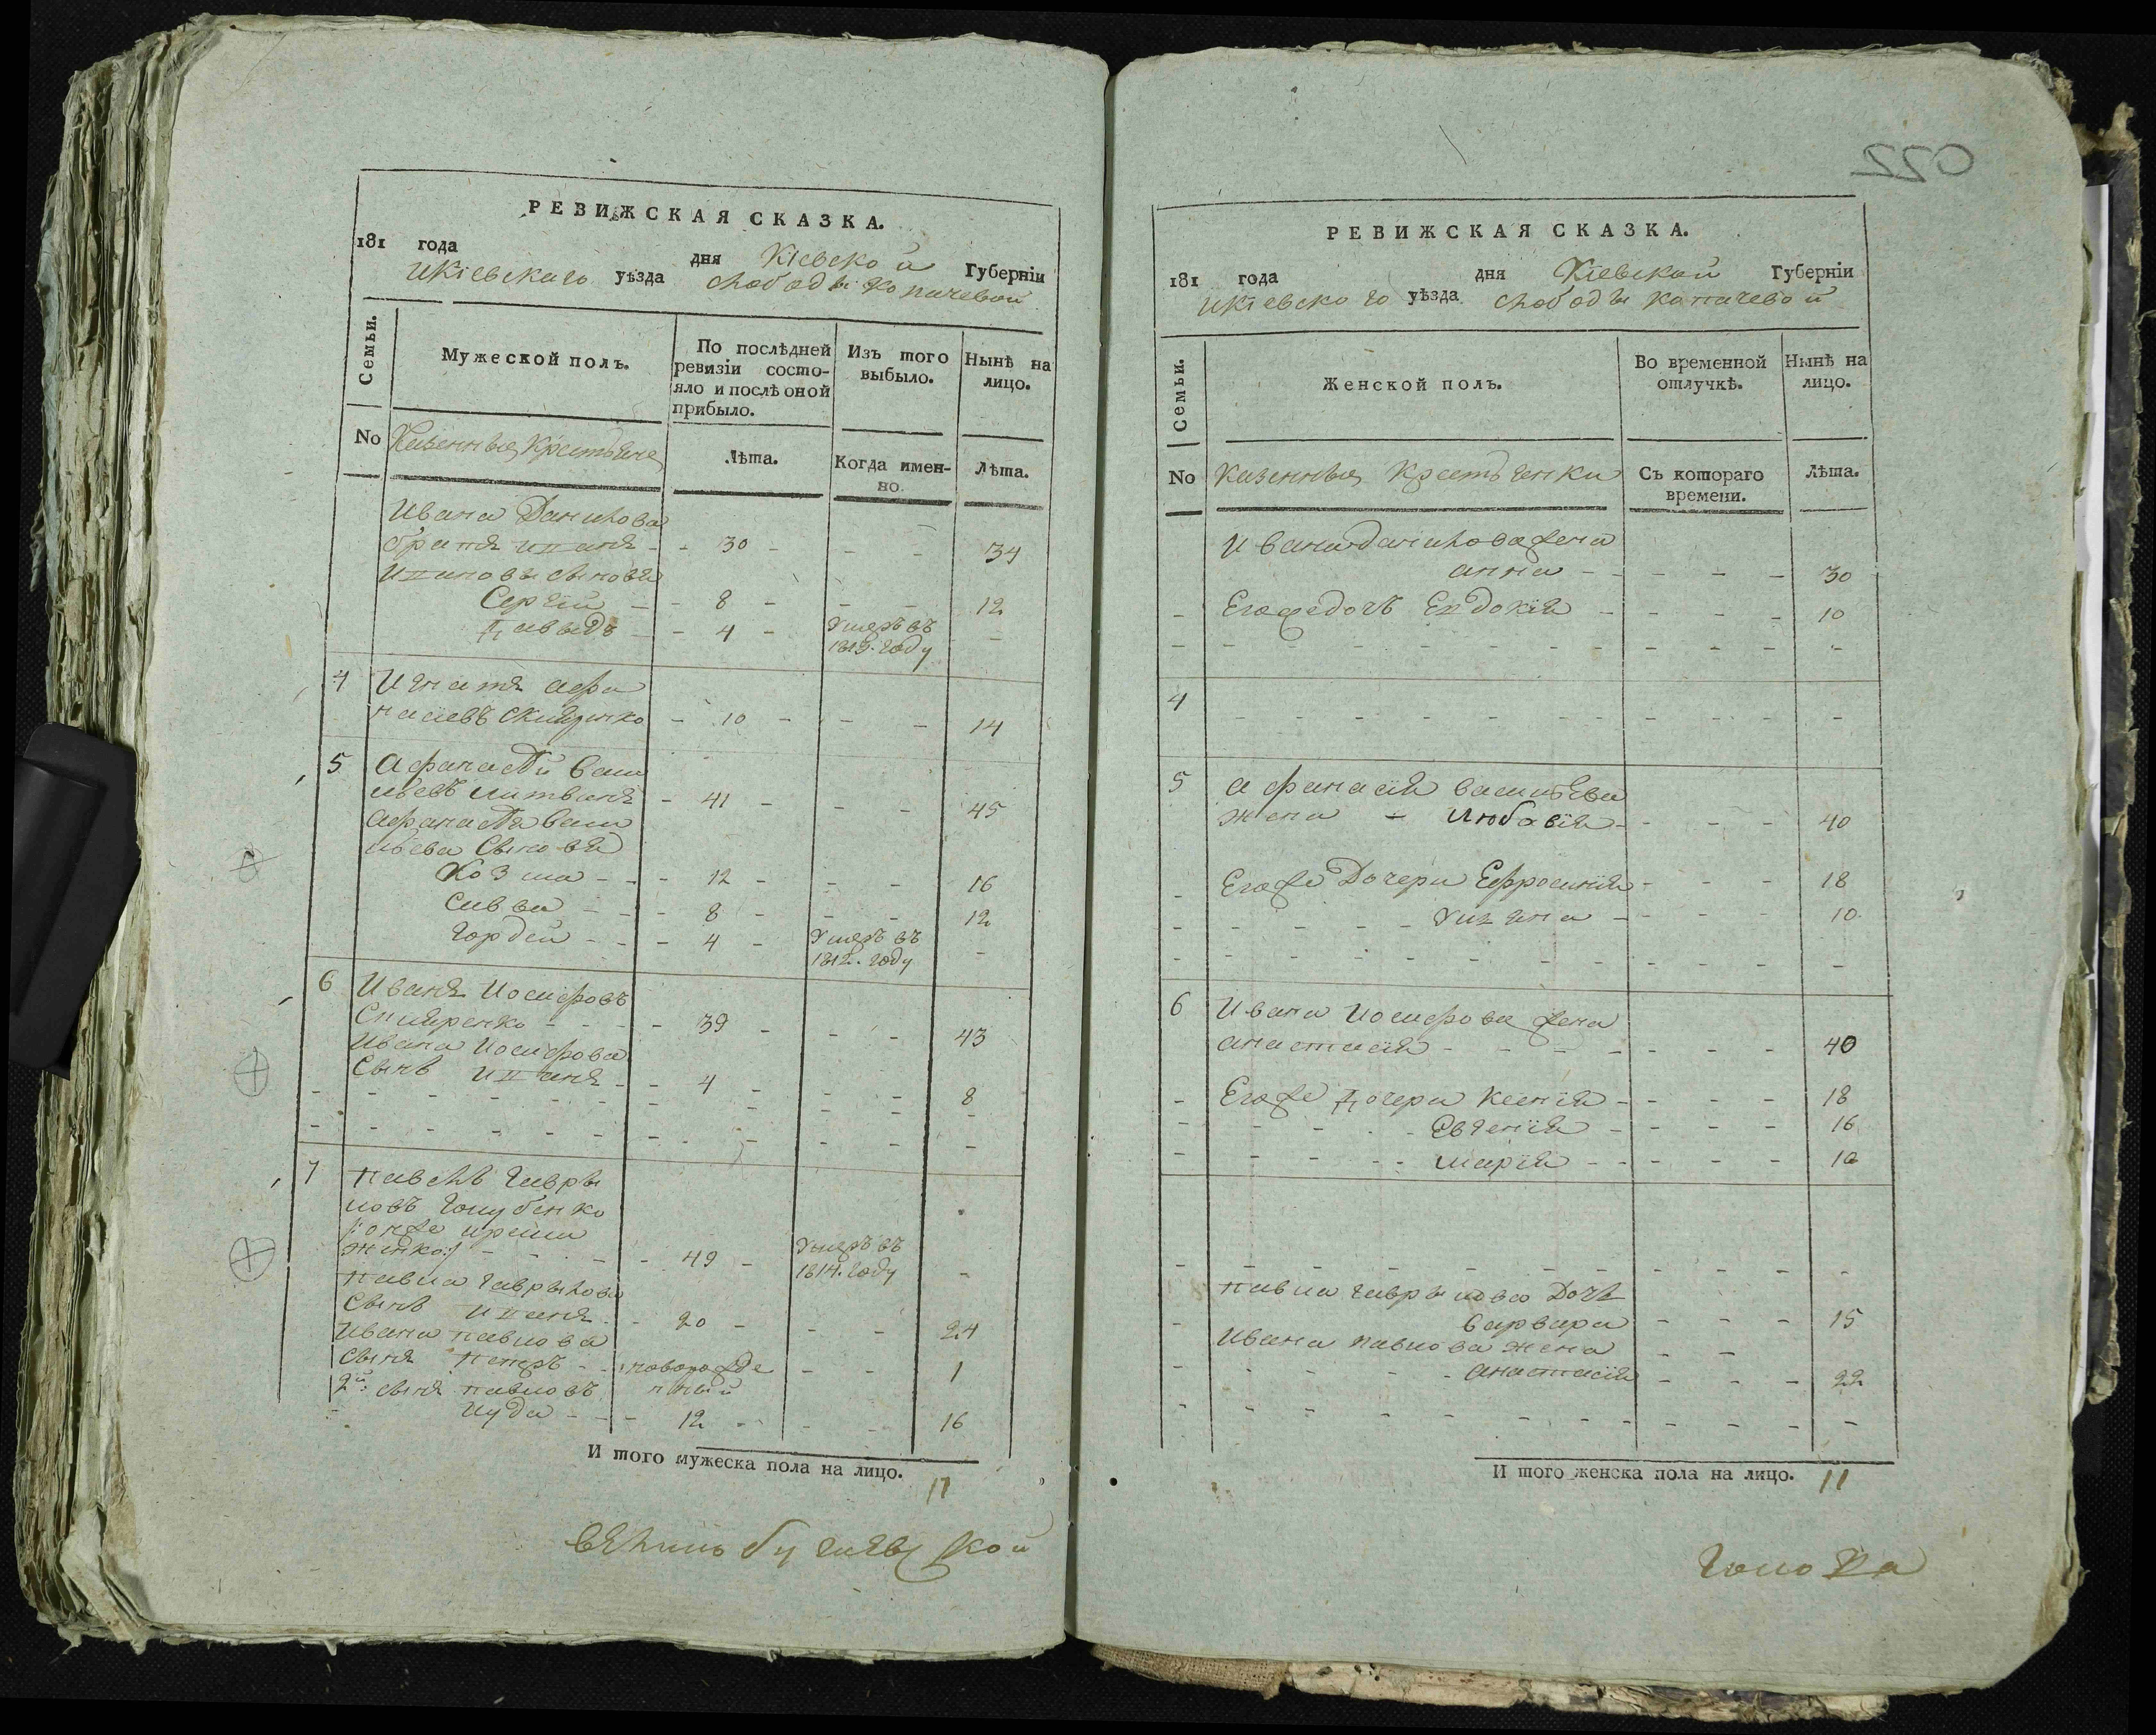 РЕВИЖСКАЯ СКАЗКА.
181 года дня Кіевской Губерніи
Икіевскаго уѣзда слободы Копачевой
Семьи.
Мужеской полъ.
По послѣдней ревизіи состояло и послѣ оной прибыло.
Изъ того выбыло.
Нынѣ на лицо.
No Казенныя Крестьяне
Лѣта.
Когда именно.
Лѣта.
Ивана Данилова
братъ Иванъ - - 30 - - - 34
Ивановы сыновя
Сергѣй - - 8 - - - 12
Давыдъ - - 4 - Умеръ въ 1813. году -
4 Игнатъ Афа
насіевъ - 10 - - - 14
5 Афанасій Васи
лѣевъ Литвинъ - 41 - - - 45
Афанасія Васи
лѣева Сыновя
Козма - - - 12 - - - 16
Савва - - - 8 - - - 12
Гордей - - - 4 - Умеръ въ 1812. году -
6 Иванъ Иосифовъ
- - - - 39 - - - 43
Ивана Иосифова
Сынъ Иванъ - - 4 - - - 8
7 Павелъ Гаври
ловъ Голубенко
- - 49 - Умеръ въ 1814. году -
Павла Гаврылова
Сынъ Иванъ - - 20 - - - 24
Ивана Павлова
Сынъ Петръ - - новорожде - - 1
2й: сынъ Павловъ нный
Иуда - - - 12 - - - 16
И того мужеска пола на лицо. 11
022
РЕВИЖСКАЯ СКАЗКА.
181 года дня Кіевской Губерніи
Икіевского уѣзда слободы Копачевой
Семьи.
Женской полъ.
Во временной отлучкѣ.
Нынѣ на лицо.
No Казенныя Крестьянки
Съ котораго времени.
Лѣта.
Ивана Данилова жена
Анна - - - - - 30
- Егожедочъ Евдокія - - - - 10
4
5 Афанасія Васильева
жена - Любовія - - - - 40
- Егоже Дочери Ефросинія - - - 18
Улляна - - - - 10
6 Ивана Иосифова жена
Анастасія - - - - - - - 40
- Егоже Дочери Ксенія - - - - 18
Евгенія - - - - 16
Марія - - - - - 10
Павла Гаврылова Дочъ
Варвара - - - - 15
Ивана Павлова жена - -
Анастасія - - - 22
И того женска пола на лицо. 11